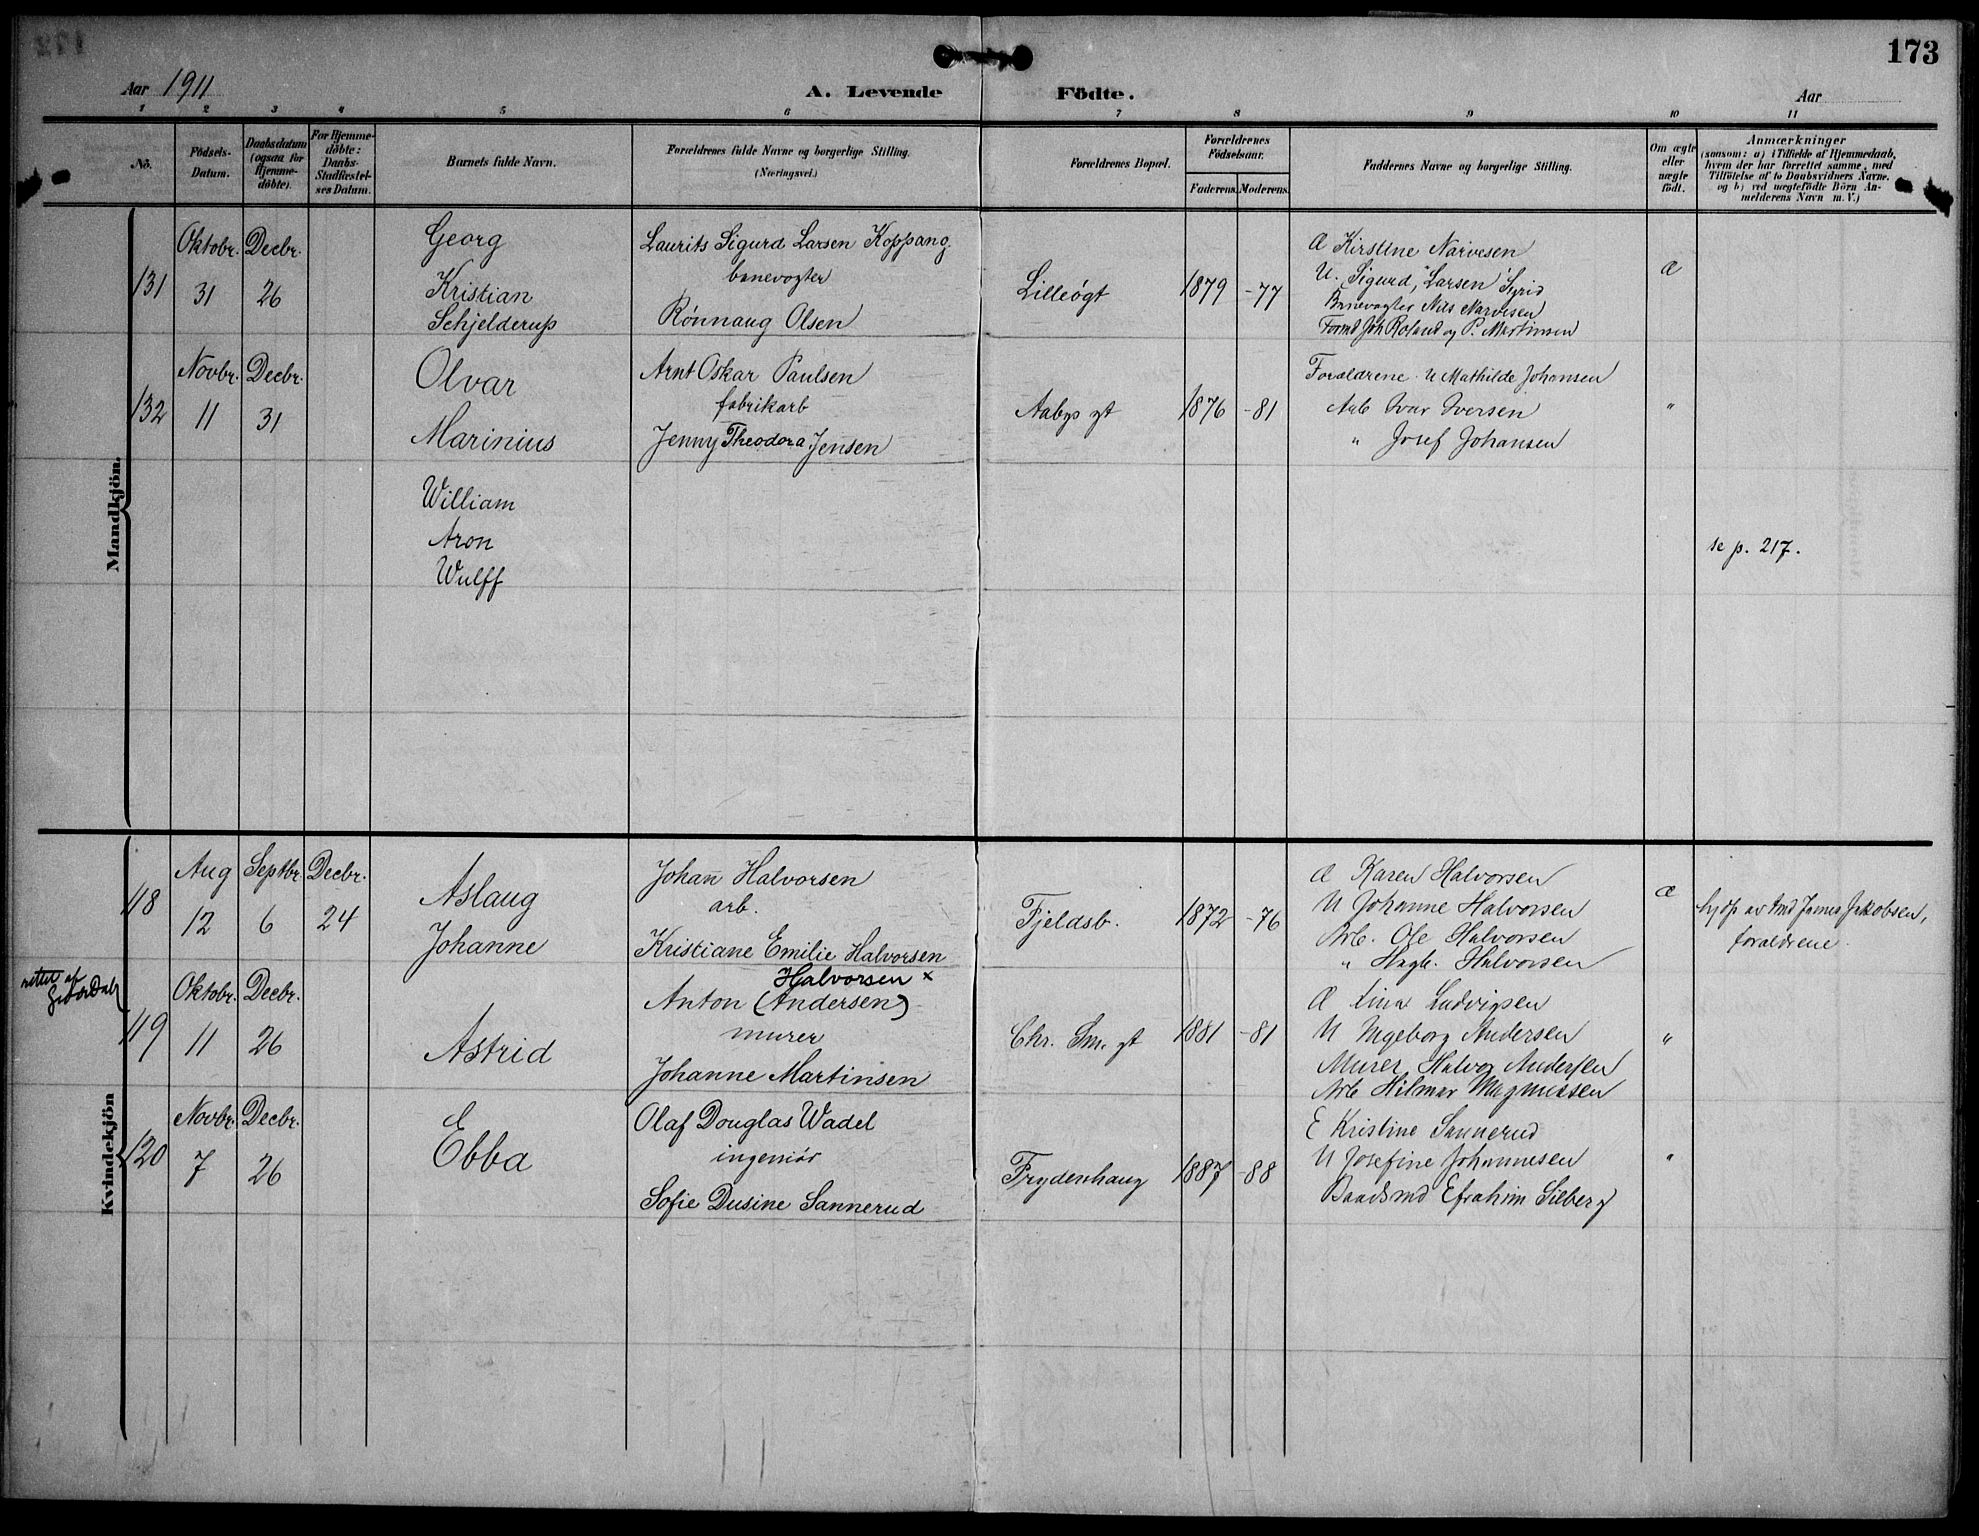 173
Aar 1911
A. Levende Födte.
Aar
1 2 3 4 5 6 7 8 9 10 11
No.
Födsels-Datum.
Daabsdatum (ogsaa for Hjemmedöbte).
For Hjemmedöbte: Daabs-Stadfæstelses Datum.
Barnets fulde Navn.
Forældrenes fulde Navne og borgerlige Stilling. (Næringsvei.)
Forældrenes Bopæl.
Forældrenes Födselsaar.
Faderens. Moderens.
Faddernes Navne og borgerlige Stilling.
Om ægte eller uægte födt.
Anmærkninger
(saasom: a) i Tilfælde af Hjemmedaab,
hvem der har forrettet samme, med
Tilföielse af to Daabsvidners Navne.
og b) ved uægtefödte Börn Anmelderens Navn m. V.)
Mandkjön.
131
Oktobr. 31
Decbr. 26
Georg
Kristian
Schjelderup
Laurits Sigurd Larsen Koppang
banevogter
Rönnaug Olsen
Lilleögt
1879 -77
Æ Kirstine Narvesen
U. Sigurd, Larsen Syrid
Banevogter Nils Narvesen
Form. Joh Roland og P. Martinsen
Æ
132
Novbr. 11
Decbr. 31
Olvar
Marinius
Arnt Oskar Paulsen
fabrikarb
Jenny Theodora Jensen
Aabys gt
1876 -81
Forældrene. U Mathilde Johansen
Arb Ivar Iversen
" Josef Johansen
"
William
Aron
Wulff
se p. 217.
Kvindekjön
118
Aug 12
Septbr. 6
Decbr. 24
Aslaug
Johanne
Johan Halvorsen
arb.
Kristiane Emilie Halvorsen
Fjeldsb.
1872 -76
Æ Karen Halvorsen
U Johanne Halvorsen
Arb. Ole Halvorsen
" Hagb. Halvorsen
Æ
hjdp av Jakobsen,
forældrene.
rettet af
119
Oktobr. 11
Decbr. 26
Astrid
Halvorsen x
Anton (Andersen)
murer
Johanne Martinsen
Chr. Sm. gt
1881 -81
Æ Lina Ludvigsen
U Ingeborg Andersen
Murer Halvor Andersen
Arb Hilmar Magnussen
"
120
Novbr. 7
Decbr. 26
Ebba
Olaf Douglas Wadel
ingeniör
Sofie Dusine Sannerud
Frydenhaug
1887 -88
E Kristine Sannerud
U Josefine Johannesen
Baadsmd Efrahim Silberg
"